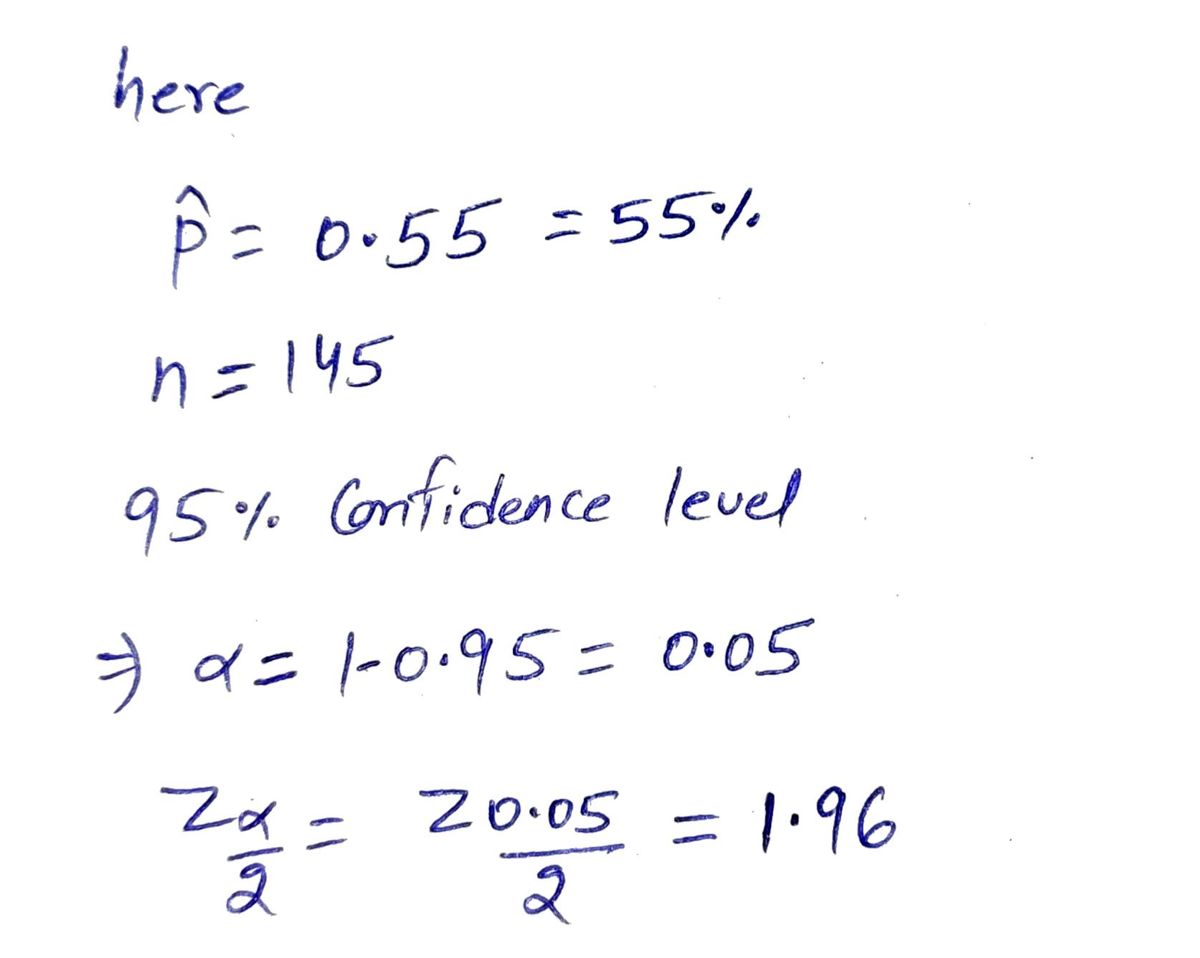 here
p̂ = 0.55 = 55%
n = 145
95% Confidence level
⇒ α = 1-0.95 = 0.05
Zα/2 = Z0.05/2 = 1.96